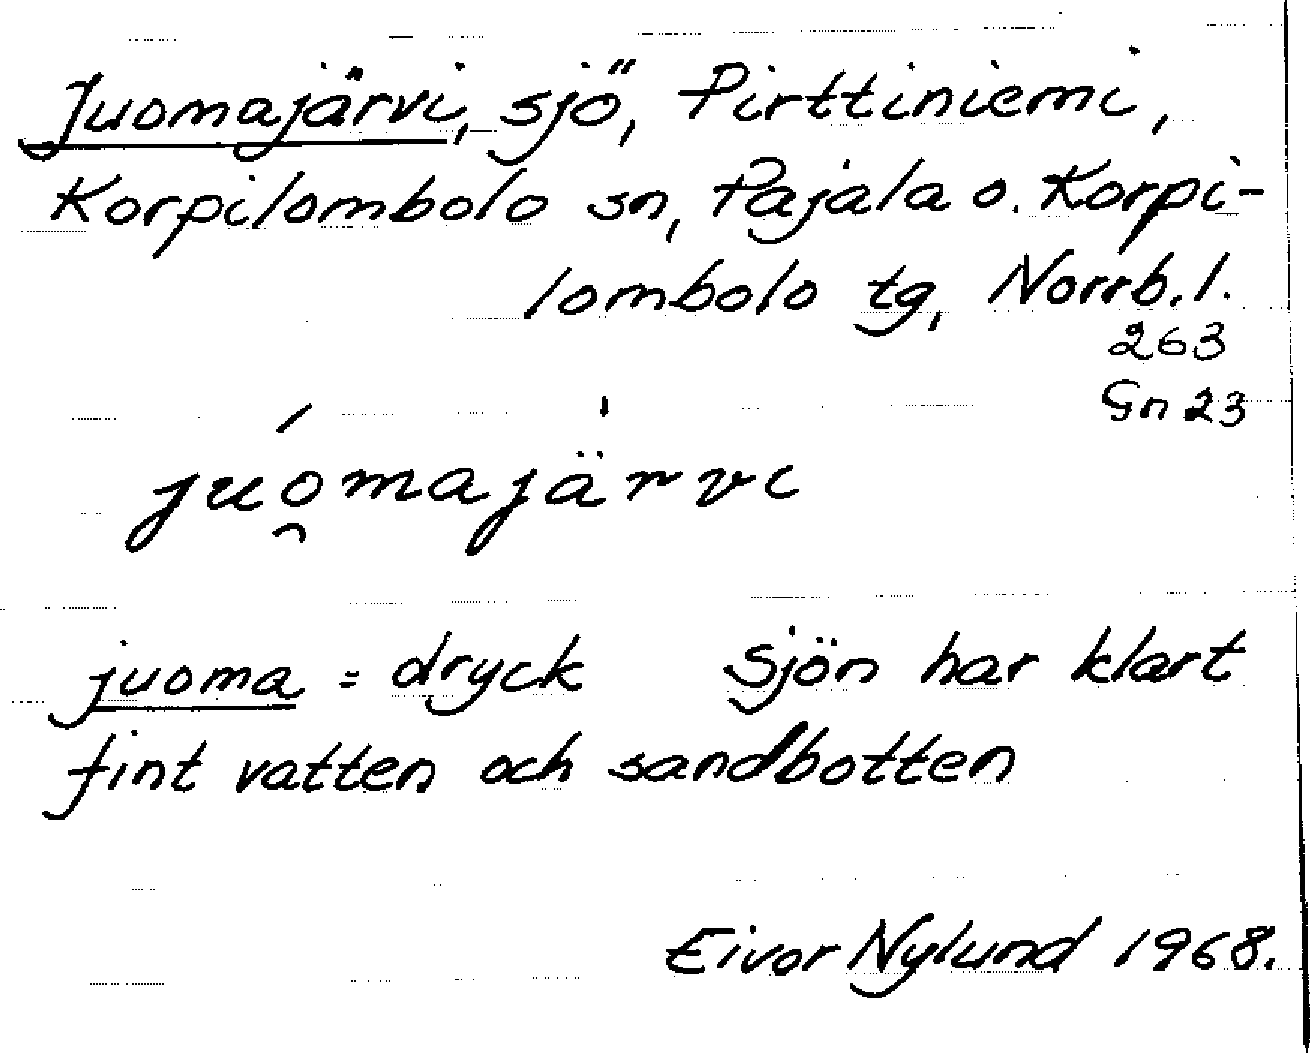 Juomajärvi, sjö, Pirttiniemi,
Korpilombolo sn, Pajala o. Korpi-
lombolo tg, Norrb. l.
263
Gn 23
juo̯majärvi
juoma = dryck sjön har klart
fint vatten och sandbotten
Eivor Nylund 1968.